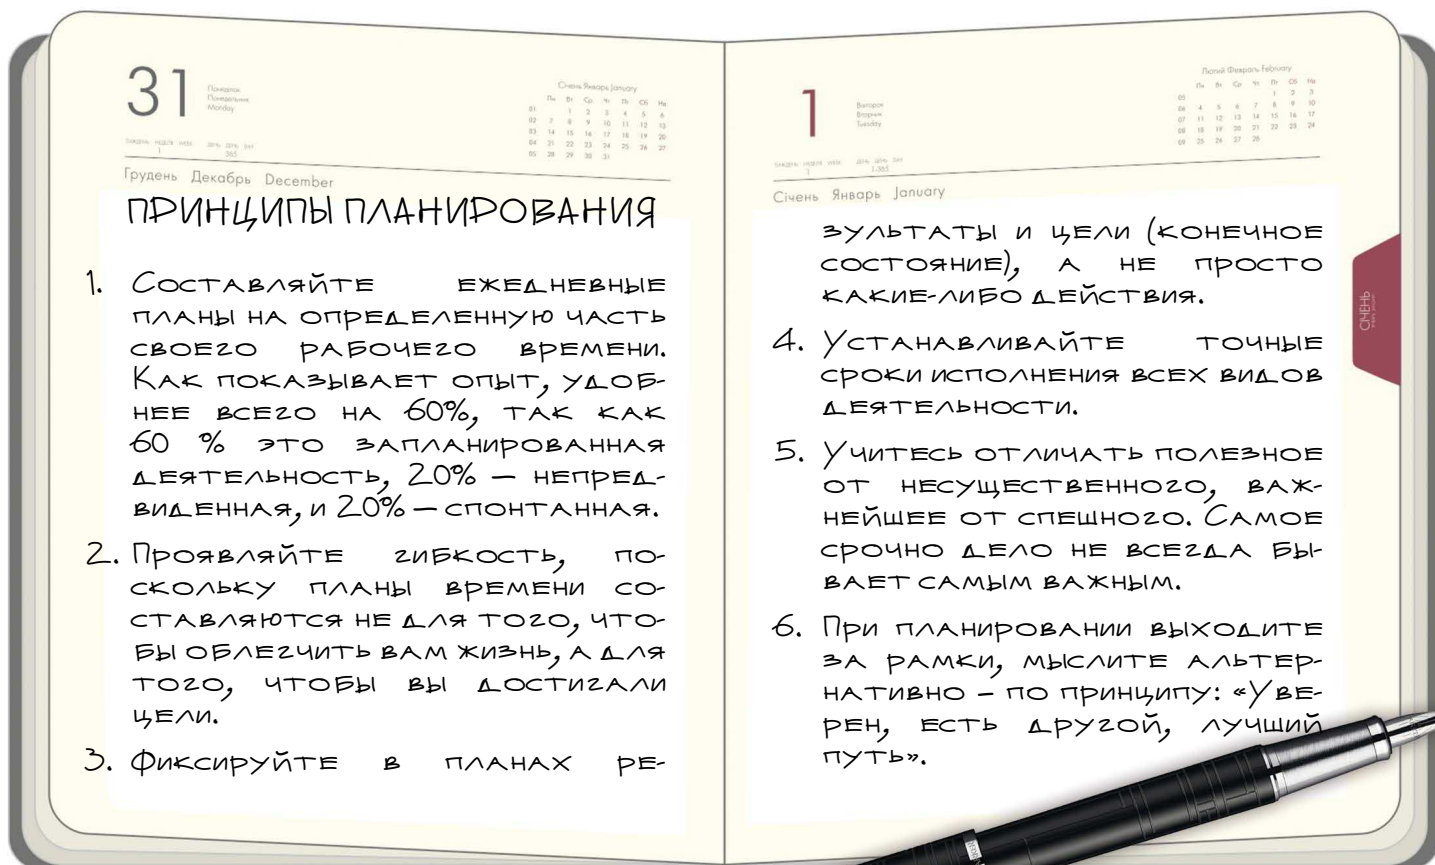 31
Понеділок
Понедельник
Monday
Січень Январь January
Пн Вт Ср Чт Пт Сб Нд
01 1 2 3 4 5 6
02 7 8 9 10 11 12 13
03 14 15 16 17 18 19 20
04 21 22 23 24 25 26 27
05 28 29 30 31
1
365
Грудень Декабрь December
ПРИНЦИПЫ ПЛАНИРОВАНИЯ
1. Составляйте ежедневные
планы на определенную часть
своего рабочего времени.
Как показывает опыт, удоб-
нее всего на 60%, так как
60 % это запланированная
деятельность, 20% — непред-
виденная, и 20% — спонтанная.
2. Проявляйте гибкость, по-
скольку планы времени со-
ставляются не для того, что-
бы облегчить вам жизнь, а для
того, чтобы вы достигали
цели.
3. Фиксируйте в планах ре-
1
Вівторок
Вторник
Tuesday
Лютий Февраль February
Пн Вт Ср Чт Пт Сб Нд
05 1 2 3
06 4 5 6 7 8 9 10
07 11 12 13 14 15 16 17
08 18 19 20 21 22 23 24
09 25 26 27 28
1
1-365
Січень Январь January
зультаты и цели (конечное
состояние), а не просто
какие-либо действия.
4. Устанавливайте точные
сроки исполнения всех видов
деятельности.
5. Учитесь отличать полезное
от несущественного, важ-
нейшее от спешного. Самое
срочно дело не всегда бы-
вает самым важным.
6. При планировании выходите
за рамки, мыслите альтер-
нативно – по принципу: «Уве-
рен, есть другой, лучший
путь».
СІЧЕНЬ